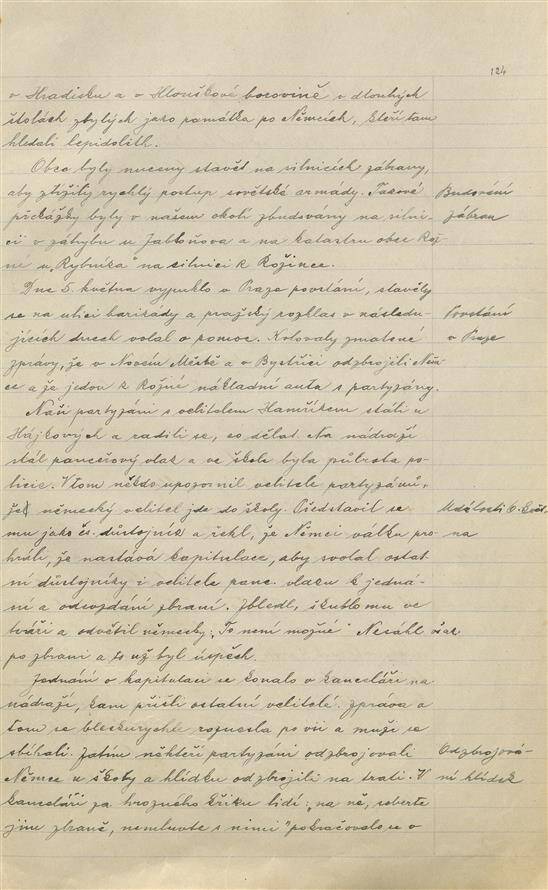 124
v Hradisku a v Hlouškově borovině v dlouhých
štolách zbylých jako památka po Němcích, kteří tam
hledali lepidolith.
Obce byly nuceny stavět na silnicích zábrany,
aby ztížily rychlý postup sovětské armády. Takové
překážky byly v našem okolí zbudovány na silni-
ci v záhybu u Jabloňova a na katastru obce Rož-
né u „Rybníka" na silnici k Rožince.
Budování
zábran
Dne 5. května vypuklo v Praze povstání, stavěly
se na ulici barikády a pražský rozhlas v následu-
jících dnech volal o pomoc. Kolovaly zmatené
zprávy, že v Novém Městě a v Bystřici odzbrojili Něm-
ce a že jedou k Rožné nákladní auta s partyzány.
Povstání
v Praze
Naši partyzáni s velitelem Hamříkem stáli u
Hájkových a radili se, co dělat. Na nádraží
stál pancéřový vlak a ve škole byla půlrota po-
licie. V tom někdo upozornil velitele partyzánů,
že německý velitel jde do školy. Představil se
mu jako čs. důstojník a řekl, že Němci válku pro-
hráli, že nastává kapitulace, aby svolal ostat-
ní důstojníky i velitele panc. vlaku k jedná-
ní a odevzdání zbraní. Zbledl, škublo mu ve
tváři a odvětil německy: „To není možné" Nesáhl však
po zbrani a to už byl úspěch.
Události 6. květ-
na
Jednání o kapitulaci se konalo v kanceláři na
nádraží, kam přišli ostatní velitelé. Zpráva a
tom se bleskurychle roznesla po vsi a muži se
sbíhali. Zatím někteří partyzáni odzbrojovali
Němce u školy a hlídku odzbrojili na trati. V
kanceláři za hrozného křiku lidí: „na ně, seberte
jim zbraně, nemluvte s nimi" pokračovalo se v
Odzbrojová-
ní hlídek